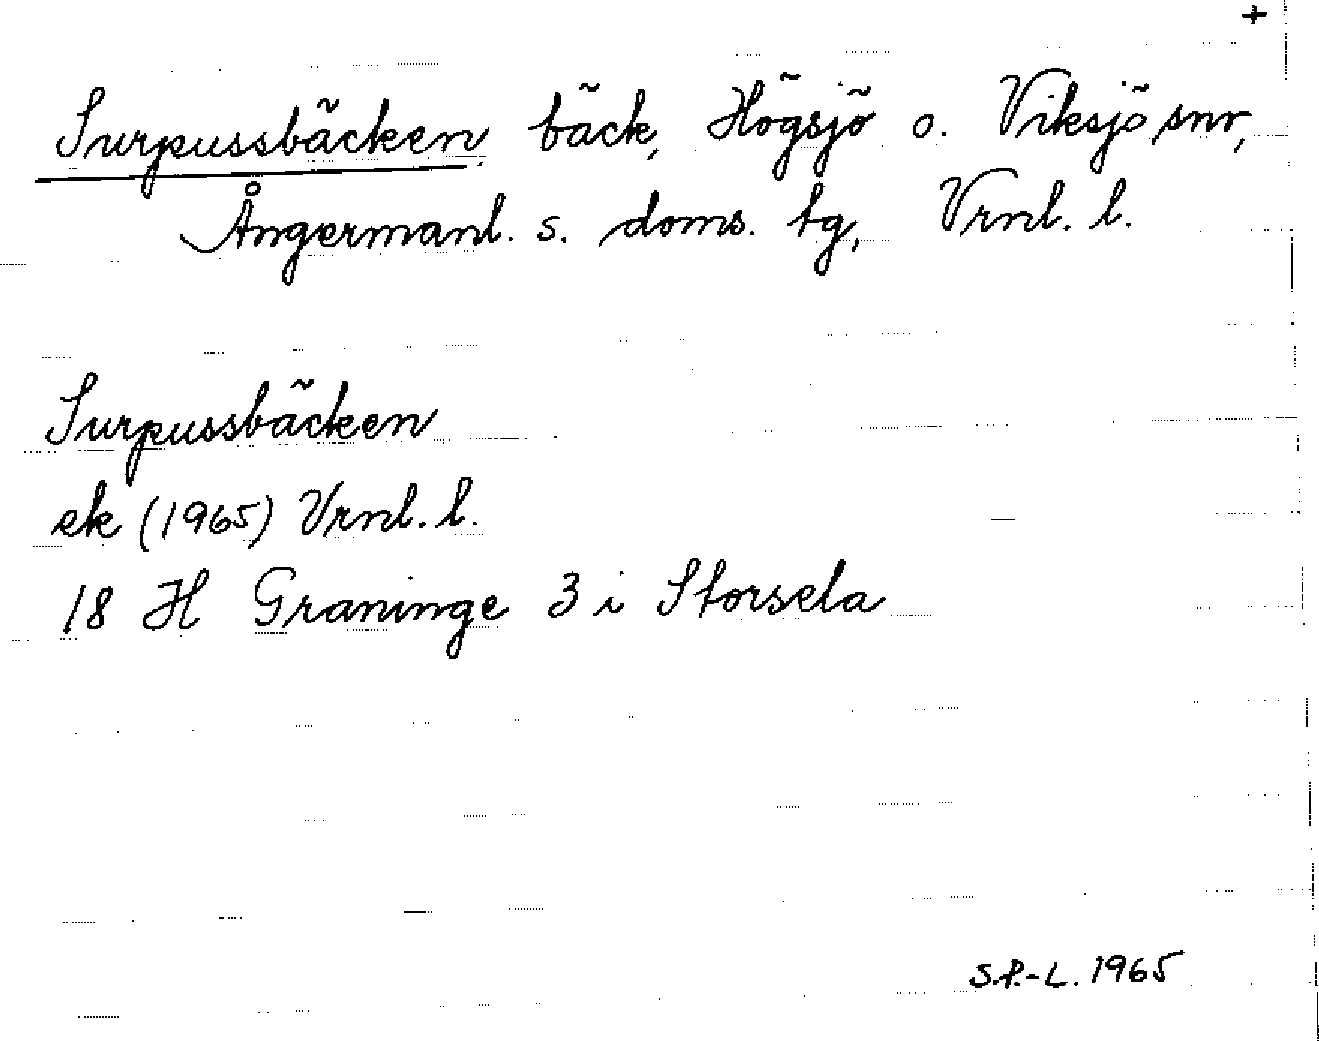 +
Surpussbäcken, bäck, Högsjö o. Viksjö snr,
Ångermanl. s. doms. tg, Vrnl. l.
Surpussbäcken
ek (1965) Vrnl. l.
18 H Graninge 3 i Storsela
S.P.-L. 1965